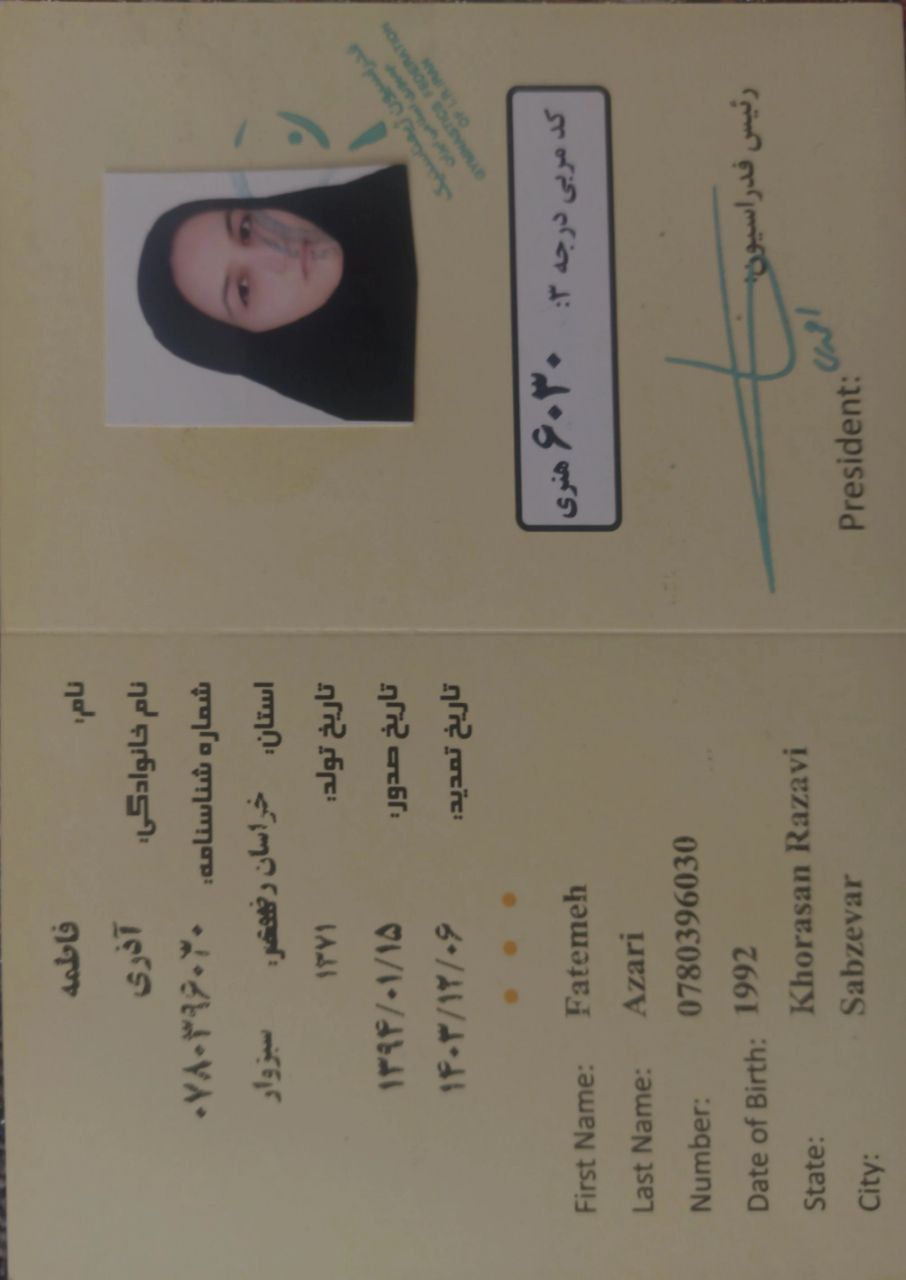 نام: فاطمه
نام خانوادگی: آذری
شماره شناسنامه: ۰۷۸۰۳۹۶۰۳۰
استان: خراسان رضوی شهر: سبزوار
تاریخ تولد: ۱۳۷۱
تاریخ صدور: ۱۳۹۴/۰۱/۱۵
تاریخ تمدید: ۱۴۰۳/۱۲/۰۶
First Name: Fatemeh
Last Name: Azari
Number: 0780396030
Date of Birth: 1992
State: Khorasan Razavi
City: Sabzevar
فدراسیون ژیمناستیک
جمهوری اسلامی ایران
GYMNASTICS FEDERATION
OF I.R.IRAN
کد مربی درجه ۳: ۶۰۳۰ هنری
رئیس فدراسیون:
President: